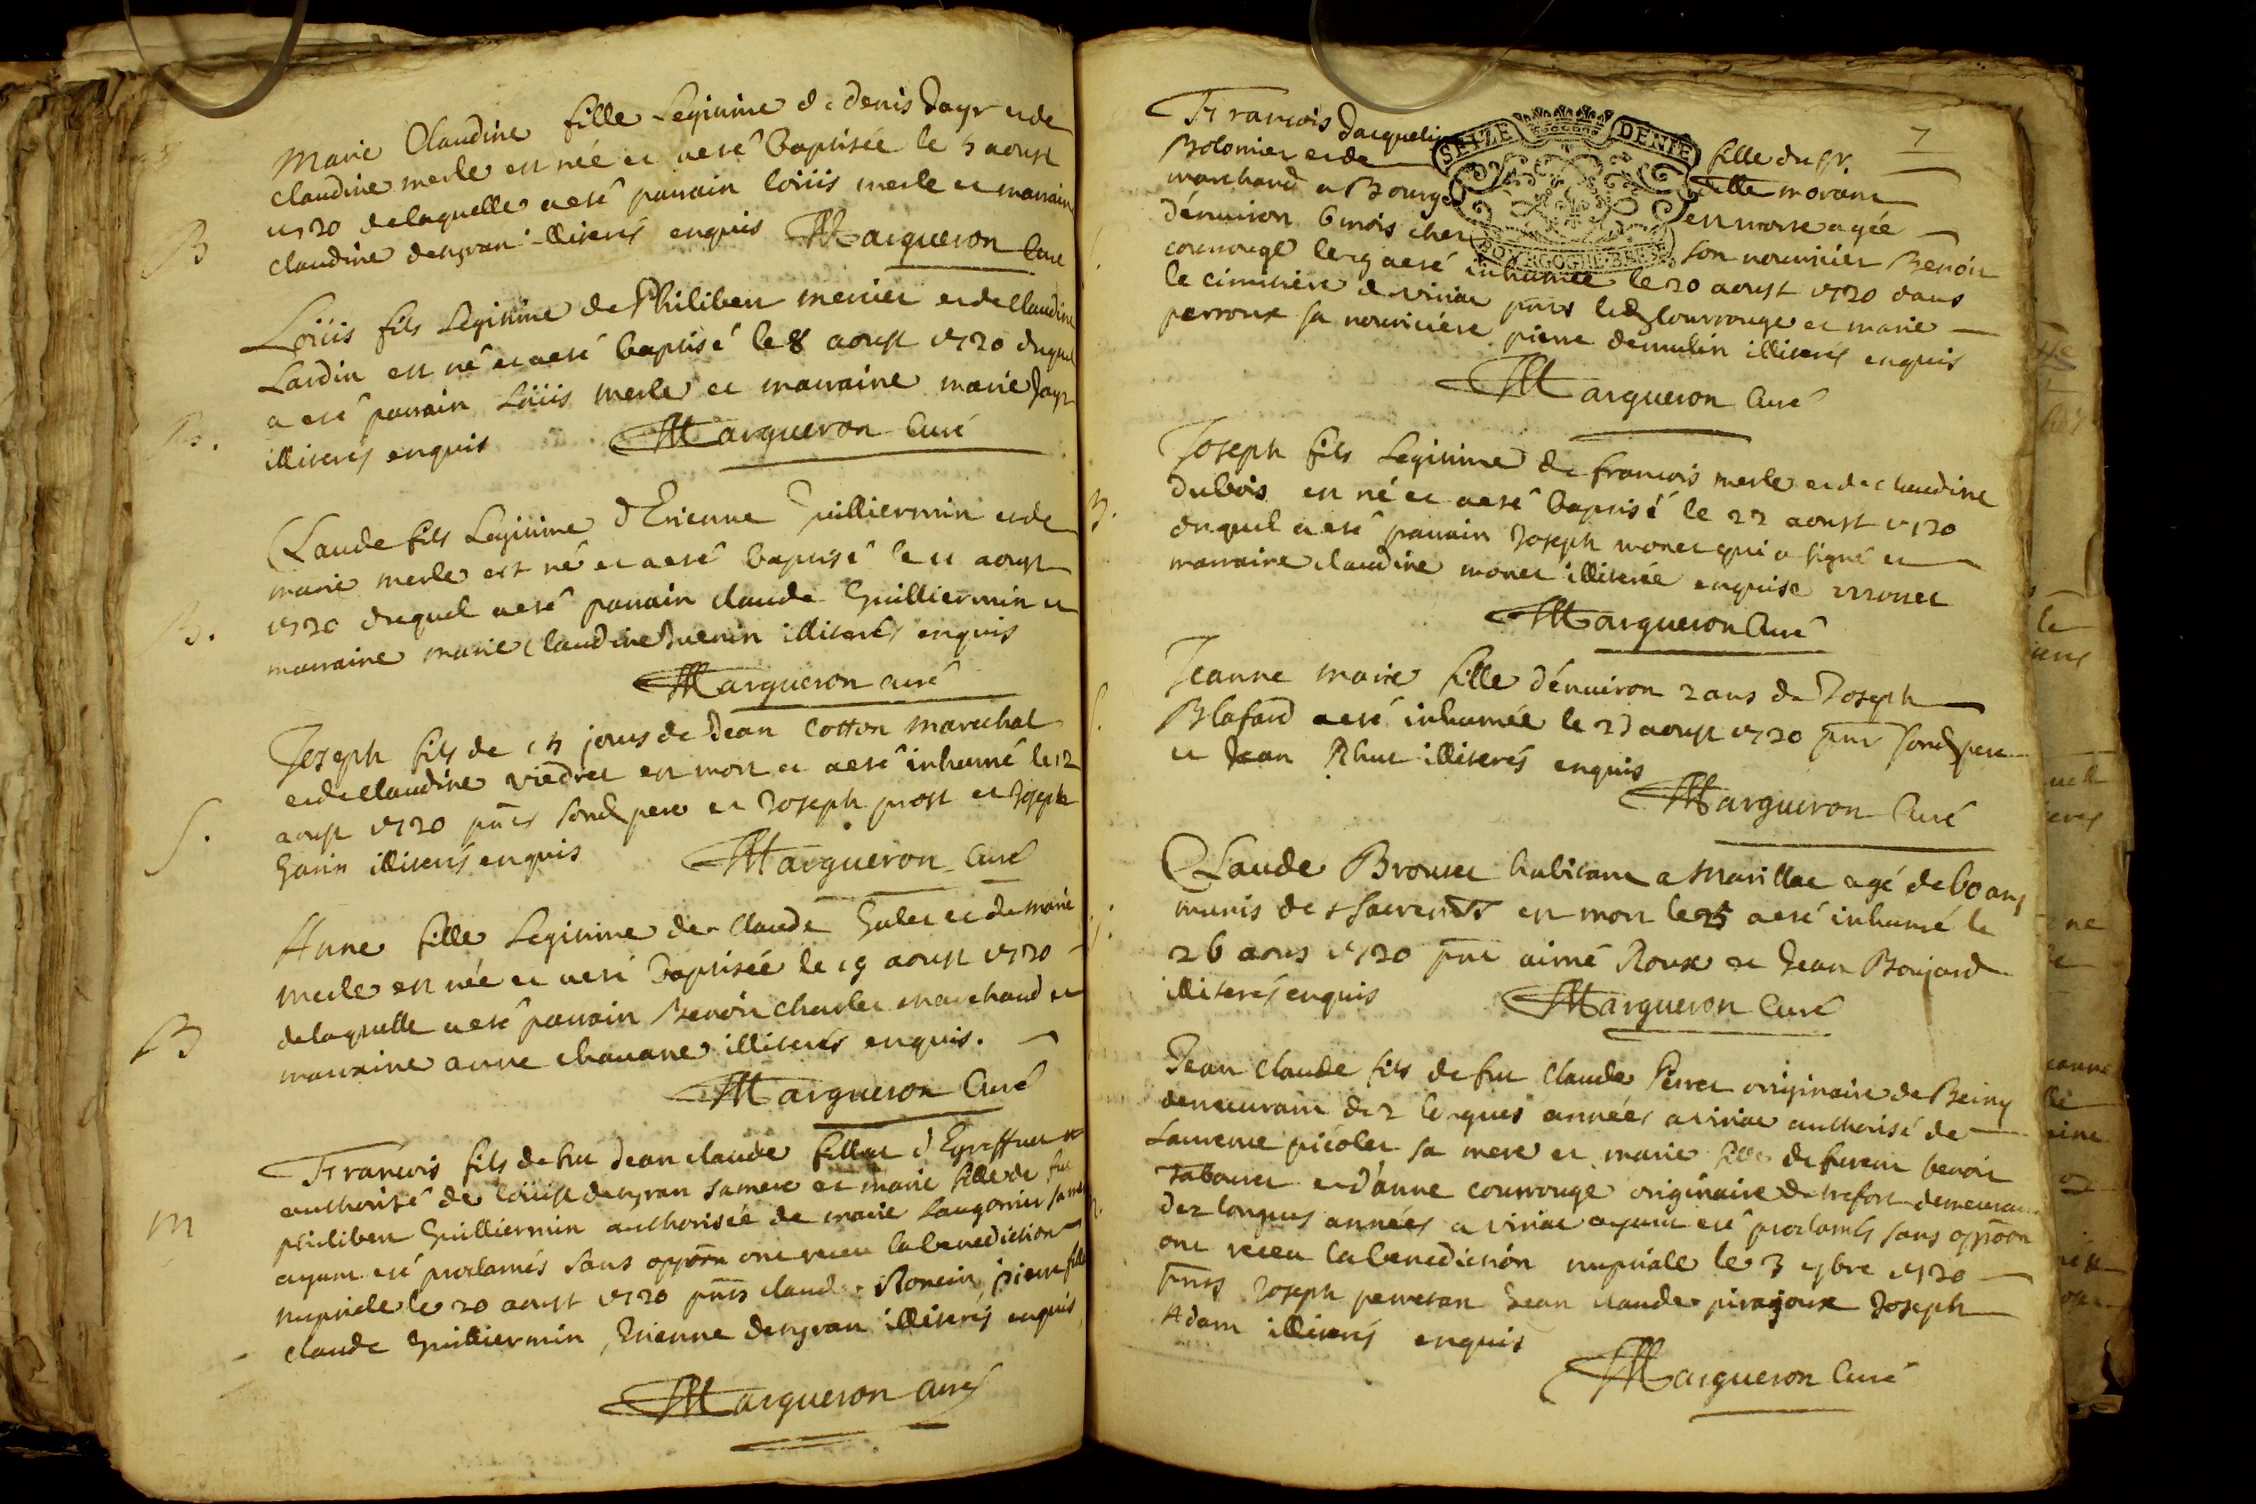 Marie Claudine fille Legitime de denis Jayr et de
claudine merle est née et a eté baptisée le 5 aoust
1720 de laquelle a eté parrain loüis merle et marraine
B
claudine dengran illiterés enquis Margueron Curé
Loüis fils Legitime de Philibert mercier et de Claudine
Lardin est né et a eté baptisé le 8 aoust 1720 duquel
a eté parrain Loüis merle et marraine marie Jayr
B.
illiterés enquis Margueron Curé
Claude fils Legitime d'Etienne Guilliermin et de
marie merle est né et a eté baptisé le 11 aoust
1720 duquel a eté parrain claude Guilliermin et
B.
marraine marie Claudine illiterés enquis
Margueron curé
Joseph fils de 15 jours de Jean Cotton marechal
et de Claudine viedret est mort et a eté inhumé le 12
aoust 1720 pnts sond pere et Joseph prost et Joseph
S.
Garin illiterés enquis Margueron Curé
Anne fille Legitime de Claude Galet et de marie
Merle est née et a eté baptisée le 19 aoust 1720
de laquelle a eté parrain Benoit charlet marchand et
B
marraine anne chavane illiterés enquis.
Margueron Curé
Francois fils de feu Jean claude fillat d'Eyreffuet et
authorisé de loüise dengran sa mere et marie fille de feu
philibert Guilliermin authorisée de marie Laugonier sa mere
M
ayant eté proclamés sans oppôon ont receu la benediction
nuptiale le 20 aoust 1720 pnts claude Roncin, pierre fillat
claude Guilliermin, Etienne dengran illiterés enquis
Margueron curé
7
SEIZE DENIE
BOURGOGNE BRE
Francois Jacqueline fille du sr
Bolomier et de delle morant
marchand a Bourg est morte agée
d'environ 6 mois chez son nourricier Benoit
courrouge le 19 a eté inhumée le 20 aoust 1720 dans
le cimitiere de viriat pnts led Courrouge et marie
perroux sa nourriciere pierre demulin illiterés enquis
Margueron Curé
Joseph fils Legitime de francois merle et de claudine
B.
dubois est né et a eté baptisé le 22 aoust 1720
duquel a eté parrain Joseph monet qui a signé et
marraine claudine monet illiterée enquise monet
Margueron Curé
Jeanne marie fille d'environ 2 ans de Joseph
S.
Blafard a eté inhumée le 23 aoust 1720 pnt sond pere
et Jean Rhut illiterés enquis
Margueron Curé
Claude Brouvet habitant a Marillat agé de 60 ans
munis des sacremts est mort le 25 a eté inhumé le
S.
26 aous 1720 pnt aimé Roux et Jean Boujard
illiterés enquis Margueron Curé
Jean Claude fils de feu Claude Perret originaire de Beiny
demeurant dez longues années a viriat authorisé de
Laurence picolet sa mere et marie fille de furent benoit
Tabouret et d'anne courrouge originaire de trefort demeurant
M.
dez longues années a viriat ayant eté proclamés sans oppôon
ont receu la benediction nuptiale le 3 7bre 1720
pnts Joseph perretan Jean claude pirajoux Joseph
Adam illiterés enquis
Margueron Curé